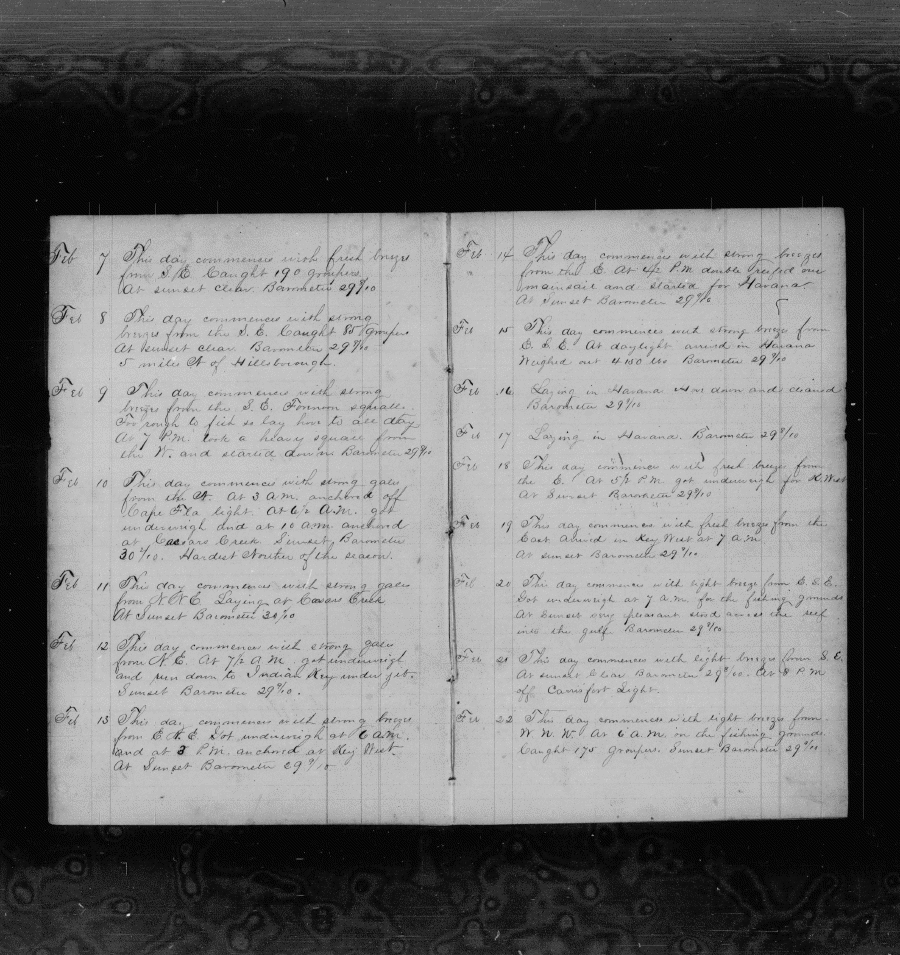 Feb 7 This day commences with fresh breeze
from S. E. Caught 190 groupers.
At sunset clear. Barometer 29 9/10
Feb 8 This day commences with strong
breezes from the S. E. Caught 85 groupers
At sunset clear Barometer 29 9/10
5 miles N of Hillsborough.
Feb 9 This day commences with strong
breeze from the S. E. Forenoon squalls.
Too rough to fish so lay hove to all day
At 7 P.M. took a heavy square from
the W. and started down Barometer 29 9/10
Feb 10 This day commences with strong gales
from the N. At 3 A M. anchored off
Cape Fla light. At 6 1/2 A.M. got
underweigh and at 10 A M anchored
at Caesars Creek. Sunset, Barometer
30 1/10. Hardest Norther of the season.
Feb 11 This day commences with strong gales
from N. N. E. Laying at Ceasars Creek
At Sunset Barometer 30 1/10
Feb 12 This day commences with strong gales
from N. E. At 7 1/2 A M. got underweigh
and run down to Indian Key under jib.
Sunset Barometer 29 9/10.
Feb 13 This day commences with strong breeze
from E N. E. Got underweigh at 6 A M.
and at 3 P.M. anchored at Key West.
At Sunset Barometer 29 9/10
Feb 14 This day commences with strong breezes
from the E. At 4 1/2 P.M. double reefed our
mainsail and started for Havana
At Sunset Barometer 29 9/10
Feb 15 This day commences with strong breeze from
E. S. E. At daylight arrived in Havana
Weighed out 4150 lbs Barometer 29 9/10
Feb 16 Laying in Havana down and cleaned
Barometer 29 9/10
Feb 17 Laying in Havana. Barometer 29 9/10
Feb 18 This day commences with fresh breeze from
the E. At 5 1/2 P.M. got underweigh for K. West
At Sunset Barometer 29 9/10
Feb 19 This day commences with fresh breezes from the
East Arrived in Key West at 7 A M
At sunset Barometer 29 9/10
Feb 20 This day commences with light breeze from E. S. E.
Got underweigh at 7 A M. for the fishing grounds
At Sunset very pleasant stood across the reef
into the gulf. Barometer 29 9/10
Feb 21 This day commences with light breezes from S. E.
At sunset Clear Barometer 29 9/10. At 8 P M
off Carisfort Light.
Feb 22 This day commences with light breezes from
W N. W. At 6 A M. on the fishing grounds
Caught 175 Groupers. Sunset Barometer 29 9/10